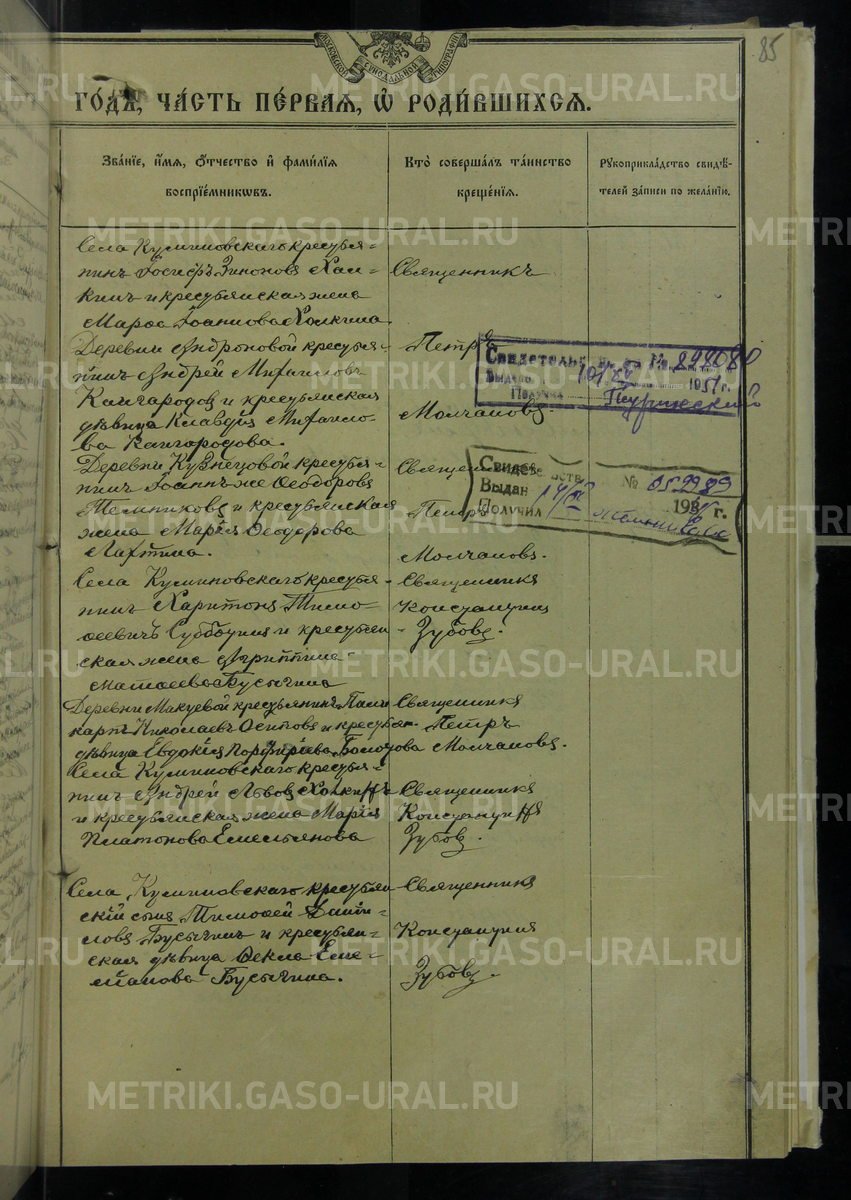 85
МОСКОВСКОЙ СѴНОДАЛЬНОЙ ТИПОГРАФІИ
ГО́ДѢ, ЧА́СТЬ ПЕ́РВАЯ, Ѡ҆ РОДИ́ВШИХСЯ.
Зва́нїе, и҆́мя, о҆́тчество и҆ фами́лїя
воспрїе́мникωвъ.
Кто̀ соверша́лъ та́инство
креще́нїя.
Рукоприкла́дство свидѣ́-
телей за́писи по жела́нїю.
Села Куминовскаго крестья-
нинъ Іосифъ Зиноновъ Хал-
кинъ и крестьянская жена
Марѳа Іоаннова Халкина.
Священникъ
Деревни Андроновой крестья-
нинъ Андрей Михаиловъ
Кайгородовъ и крестьянская
дѣвица Клавдія Михаило-
ва Кайгородова.
Петръ
Молчановъ
Свидетельство № 898080
Выдано 1951 г.
Получил
Деревни Кузнецовой крестья-
нинъ Іоаннъ же Ѳеодоровъ
Темниковъ и крестьянская
жена Марія Ѳеодорова
Лаптина.
Петръ
Молчановъ.
Свидетельство № 059989
Выдан
Получил 198 г.
Села Куминовскаго крестья-
нинъ Харитонъ Тимо-
ѳеевичъ Субботинъ и крестьян-
ская жена Агриппина
Матѳеева Бусыгина
Священникъ
Константинъ
Зубовъ.
Деревни Макуевой крестьянинъ Поли-
карпъ Николаевъ Осиповъ и крестьян.
дѣвица Евдокія Порфирьева Болотова
Священникъ
Петръ
Молчановъ.
Села Куминовскаго крестья-
нинъ Андрей Львовъ Халкинъ
и крестьянская жена Марія
Платонова Емельянова
Священникъ
Константинъ
Зубовъ.
Села Куминовскаго крестьян
скій сынъ Тимоѳей Дани-
ловъ Бусыгинъ и крестьян-
ская дѣвица Ѳекла Еме-
льянова Бусыгина.
Священникъ
Константинъ
Зубовъ.
METRIKI.GASO-URAL.RU